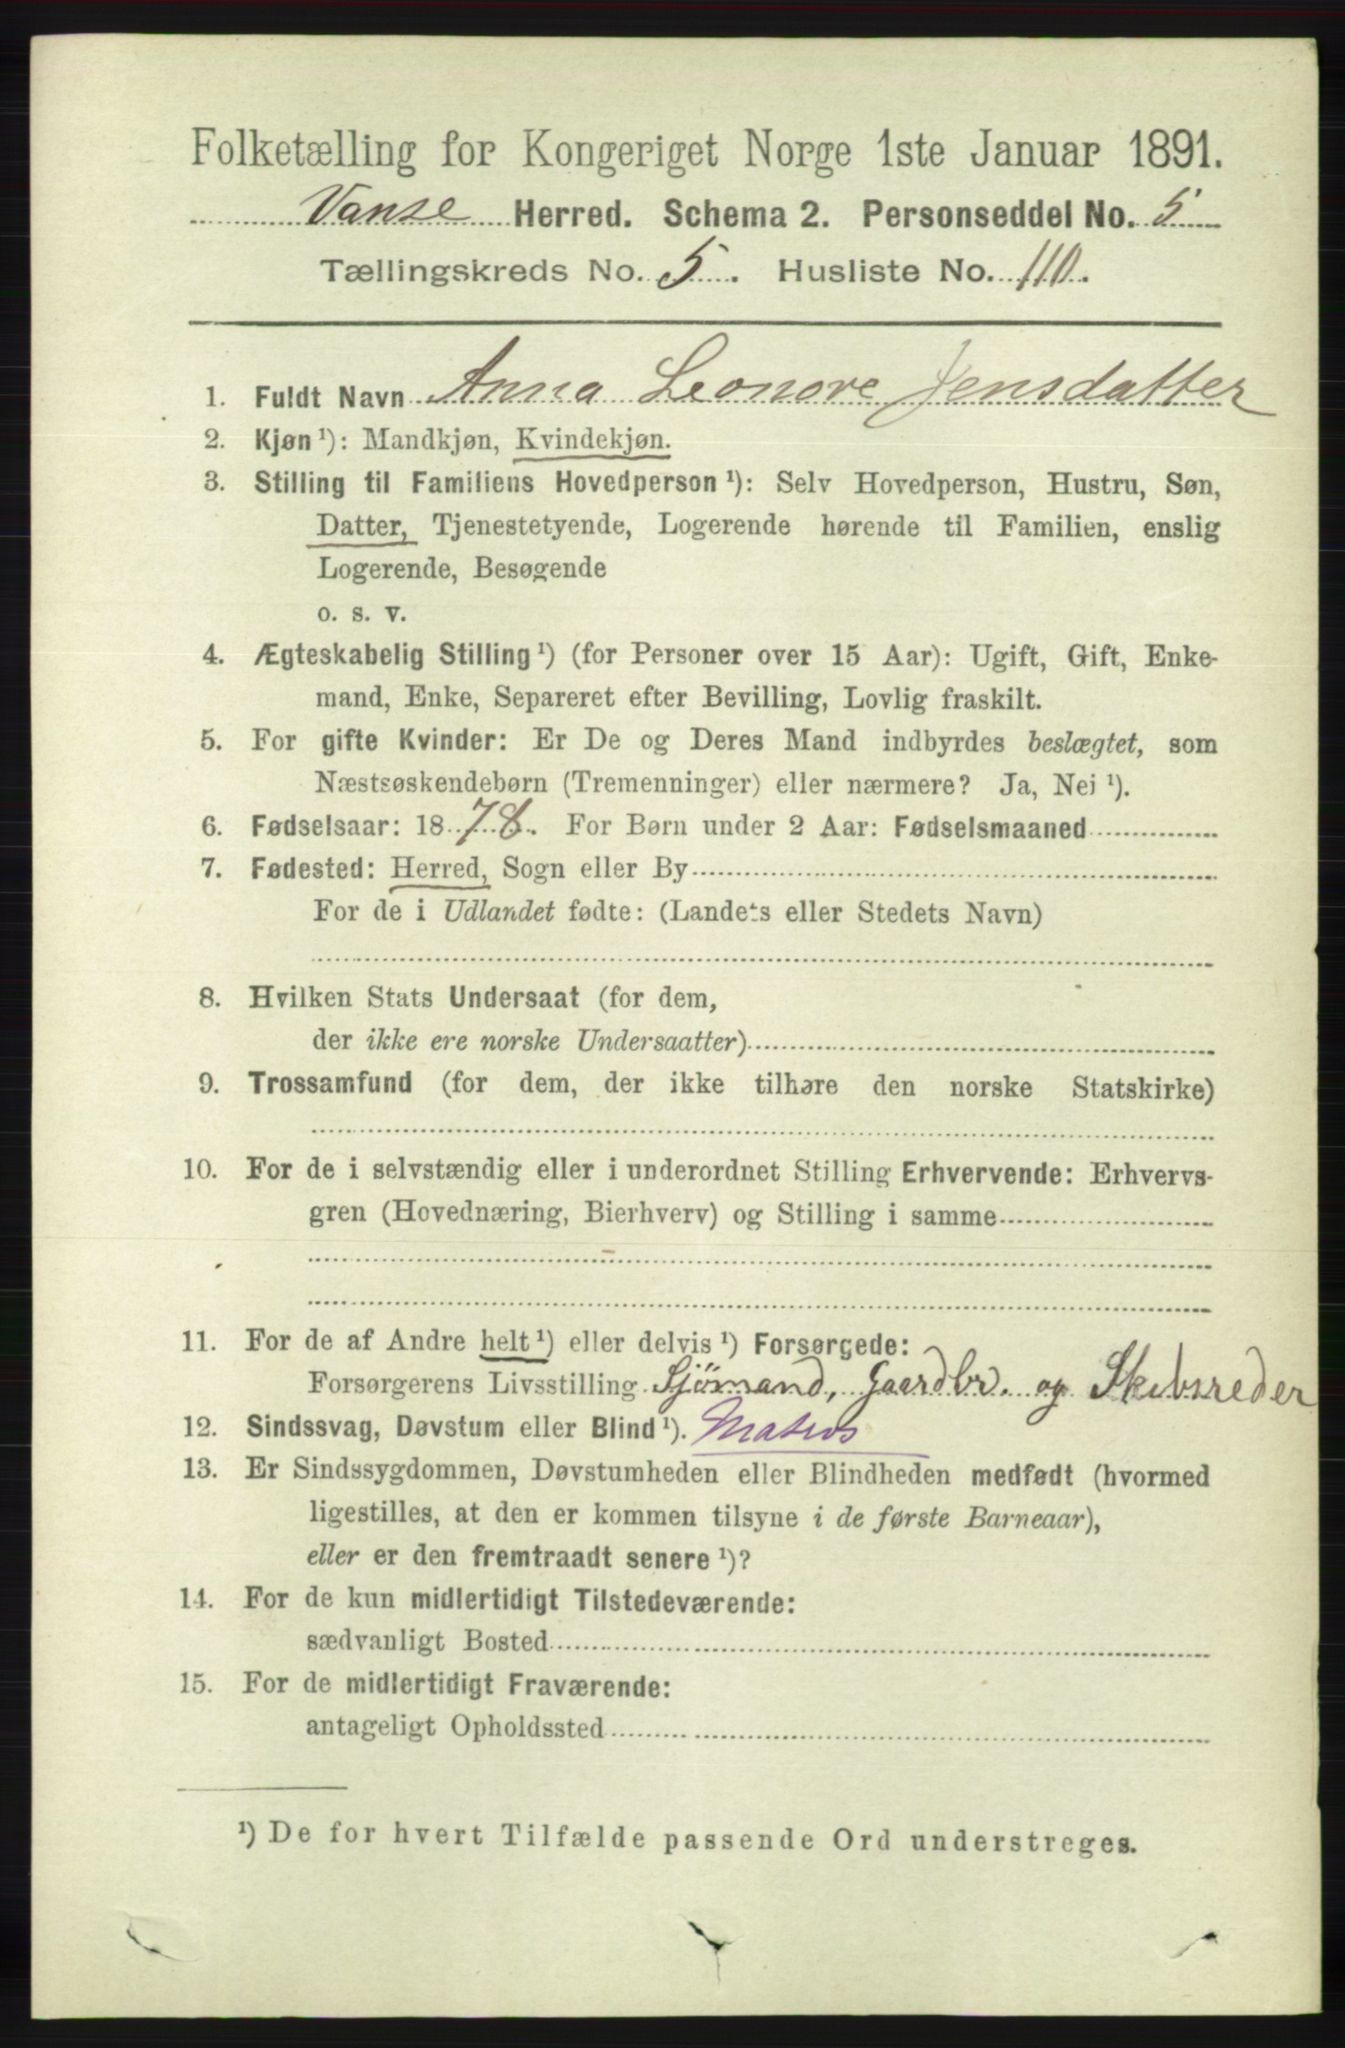 Folketælling for Kongeriget Norge 1ste Januar 1891.
Vanse Herred. Schema 2. Personseddel No. 5
Tællingskreds No. 5. Husliste No. 110.
1. Fuldt Navn Anna Leonore Jensdatter
2. Kjøn ¹): Mandkjøn, Kvindekjøn.
3. Stilling til Familiens Hovedperson ¹): Selv Hovedperson, Hustru, Søn,
Datter, Tjenestetyende, Logerende hørende til Familien, enslig
Logerende, Besøgende
o. s. v.
4. Ægteskabelig Stilling ¹) (for Personer over 15 Aar): Ugift, Gift, Enke-
mand, Enke, Separeret efter Bevilling, Lovlig fraskilt.
5. For gifte Kvinder: Er De og Deres Mand indbyrdes beslægtet, som
Næstsøskendebørn (Tremenninger) eller nærmere? Ja, Nei ¹).
6. Fødselsaar: 1878. For Børn under 2 Aar: Fødselsmaaned
7. Fødested: Herred, Sogn eller By
For de i Udlandet fødte: (Landets eller Stedets Navn)
8. Hvilken Stats Undersaat (for dem,
der ikke ere norske Undersaatter)
9. Trossamfund (for dem, der ikke tilhøre den norske Statskirke)
10. For de i selvstændig eller i underordnet Stilling Erhvervende: Erhvervs-
gren (Hovednæring, Bierhverv) og Stilling i samme
11. For de af Andre helt ¹) eller delvis ¹) Forsørgede:
Forsørgerens Livsstilling Sjömand, Gaardbr. og Skibsreder
12. Sindssvag, Døvstum eller Blind ¹). Matros
13. Er Sindssygdommen, Døvstumheden eller Blindheden medfødt (hvormed
ligestilles, at den er kommen tilsyne i de første Barneaar),
eller er den fremtraadt senere ¹)?
14. For de kun midlertidigt Tilstedeværende:
sædvanligt Bosted
15. For de midlertidigt Fraværende:
antageligt Opholdssted
¹) De for hvert Tilfælde passende Ord understreges.